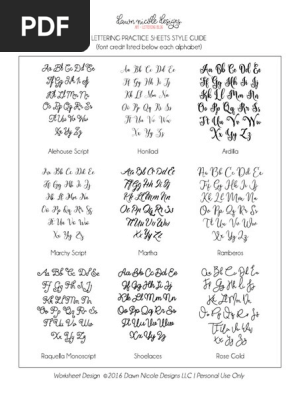 PDF
dawn nicole designs
LETTERING PRACTICE SHEETS STYLE GUIDE
(font credit listed below each alphabet)
Aa Bb Cc Dd Ee Aa Bb Cc Dd Ee Aa Bb Cc Dd Ee
Ff Gg Hh Ii Jj Ff Gg Hh Ii Jj Ff Gg Hh Ii Jj
Kk Ll Mm Nn Kk Ll Mm Nn Kk Ll Mm Nn
Oo Pp Qq Rr Ss Oo Pp Qq Rr Ss Oo Pp Qq Rr Ss
Tt Uu Vv Ww Tt Uu Vv Ww Tt Uu Vv Ww
Xx Yy Zz Xx Yy Zz Xx Yy Zz
Alehouse Script Honilad Ardilla
Aa Bb Cc Dd Ee Aa Bb Cc Dd Ee Aa Bb Cc Dd Ee
Ff Gg Hh Ii Jj Ff Gg Hh Ii Jj Ff Gg Hh Ii Jj
Kk Ll Mm Nn Kk Ll Mm Nn Kk Ll Mm Nn
Oo Pp Qq Rr Ss Oo Pp Qq Rr Ss Oo Pp Qq Rr Ss
Tt Uu Vv Ww Tt Uu Vv Ww Tt Uu Vv Ww
Xx Yy Zz Xx Yy Zz Xx Yy Zz
Marchy Script Martha Ramberos
Aa Bb Cc Dd Ee Aa Bb Cc Dd Ee Aa Bb Cc Dd Ee
Ff Gg Hh Ii Jj Ff Gg Hh Ii Jj Ff Gg Hh Ii Jj
Kk Ll Mm Nn Kk Ll Mm Nn Kk Ll Mm Nn
Oo Pp Qq Rr Ss Oo Pp Qq Rr Ss Oo Pp Qq Rr Ss
Tt Uu Vv Ww Tt Uu Vv Ww Tt Uu Vv Ww
Xx Yy Zz Xx Yy Zz Xx Yy Zz
Raquella Monoscript Shoefaces Rose Gold
Worksheet Design ©2016 Dawn Nicole Designs LLC | Personal Use Only